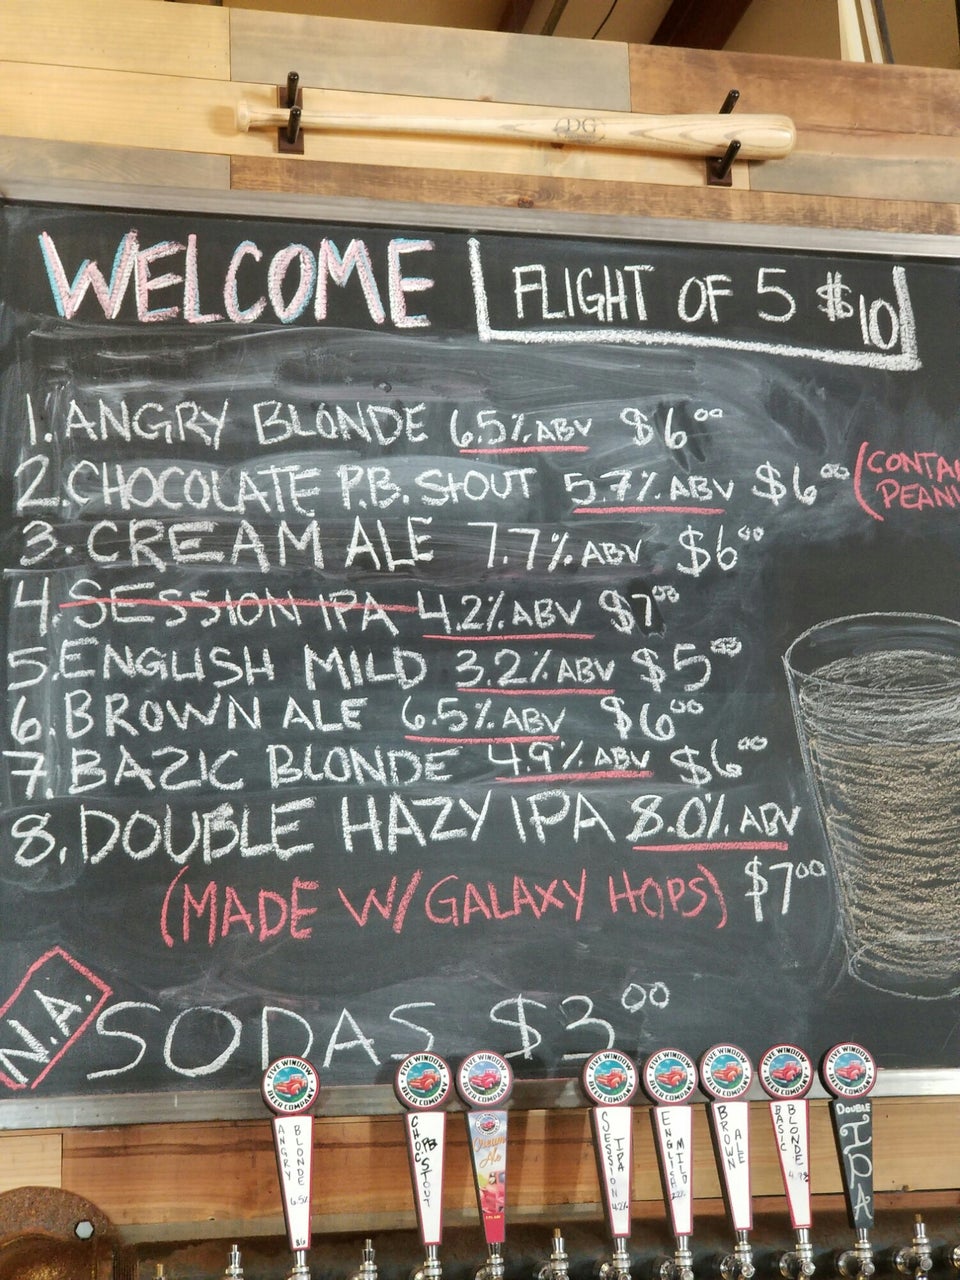 DG
WELCOME
FLIGHT OF 5 $10
1. ANGRY BLONDE 6.5% ABV $6.00
2. CHOCOLATE P.B. STOUT 5.7% ABV $6.00 (CONTA
PEANU
3. CREAM ALE 7.7% ABV $6.00
4. SESSION IPA 4.2% ABV $7.00
5. ENGLISH MILD 3.2% ABV $5.00
6. BROWN ALE 6.5% ABV $6.00
7. BAZIC BLONDE 4.9% ABV $6.00
8. DOUBLE HAZY IPA 8.0% ABV
(MADE W/ GALAXY HOPS) $7.00
N.A. SODAS $3.00
FIVE WINDOW BEER COMPANY
ANGRY BLONDE 6.5% $6
FIVE WINDOW BEER COMPANY
CHOC PB STOUT
FIVE WINDOW BEER COMPANY
Cream Ale
FIVE WINDOW BEER COMPANY
SESSION IPA 4.2%
FIVE WINDOW BEER COMPANY
ENGLISH MILD
FIVE WINDOW BEER COMPANY
BROWN ALE
FIVE WINDOW BEER COMPANY
BASIC BLONDE
FIVE WINDOW BEER COMPANY
DOUBLE IPA